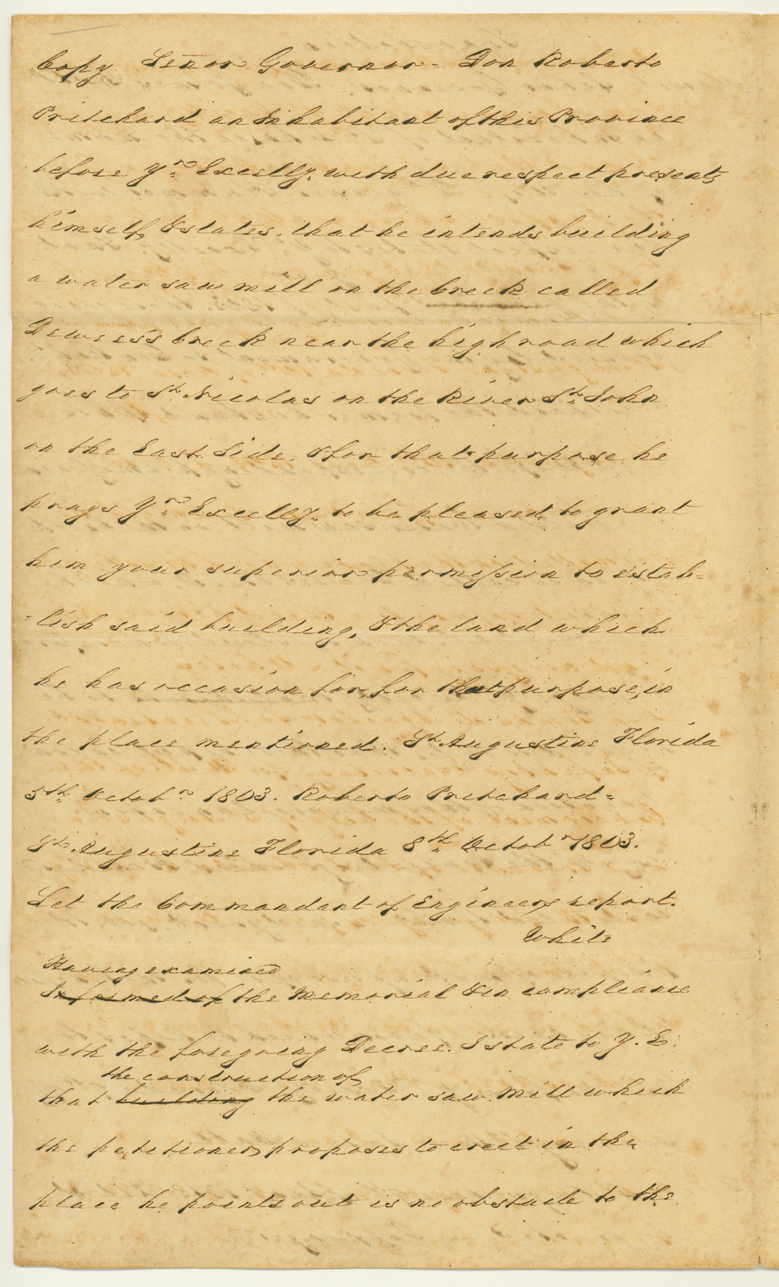 Copy Señor Governor - Don Roberto
Pritchard an Inhabitant of this Province
before Yr. Excelly. with due respect presents
himself, & states, that he intends building
a water saw mill on the Creek called
Dewees's Creek near the high road which
goes to St. Nicolas on the River St. John
on the East Side, & for that purpose he
prays Yr. Excelly. to be pleased to grant
him your superior permission to estab-
-lish said building, & the land which
he has occasion for, for that purpose, in
the place mentioned. St. Augustine Florida
5th Octobr 1803. Roberto Pritchard=
St. Augustine Florida 8th Octobr 1803.
Let the Commandant of Engineers report.
White
Having examined
Informed of the Memorial & in compliance
with the foregoing Decree. I state to Y. E.
the construction of
that building the water saw mill which
the petitioner proposes to erect in the
place he points out is no obstacle to the